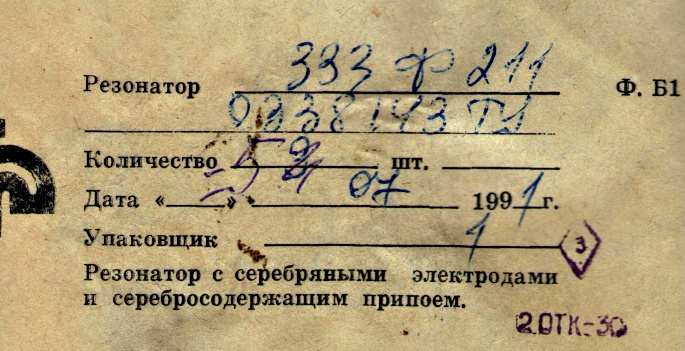 Резонатор 333 Ф 211 Ф. Б1
0338193 ТУ
Количество шт.
Дата « » 07 1991г.
Упаковщик 1 3
Резонатор с серебряными электродами
и серебросодержащим припоем.
2 ОТК-30